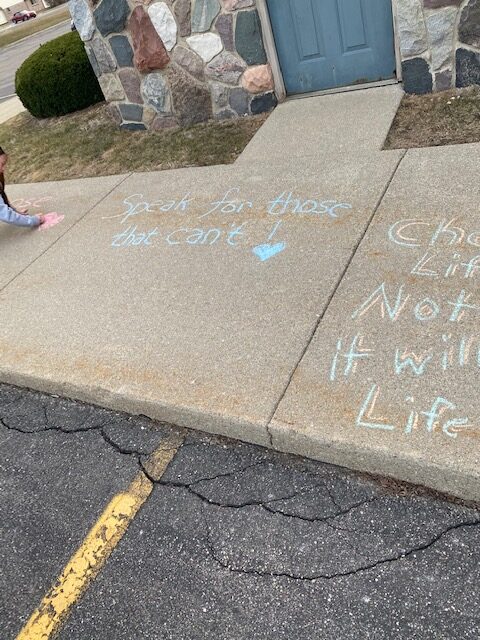 Speak for those
that can't!
Not
It will
Life